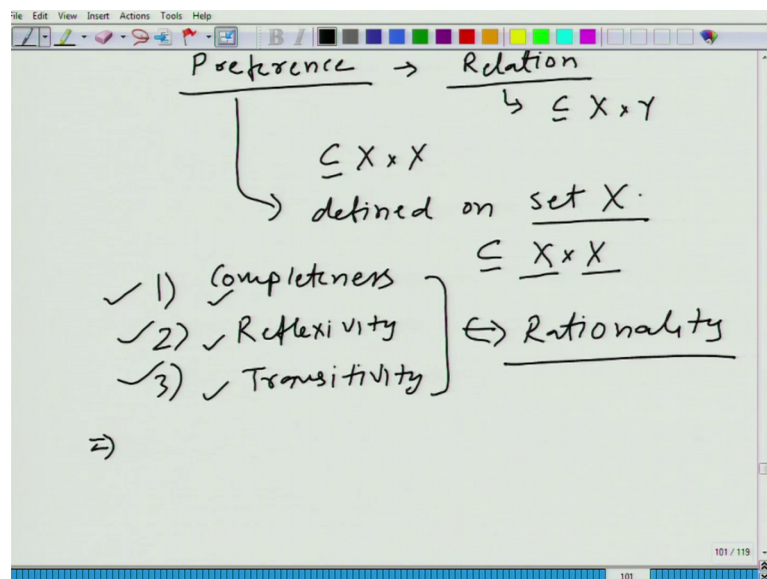 File Edit View Insert Actions Tools Help
Preference → Relation
↳ ⊆ X × Y
⊆ X × X
defined on set X.
⊆ X × X
✓ 1) ✓ Completeness
✓ 2) ✓ Reflexivity ⇔ Rationality
✓ 3) ✓ Transitivity
⇒
101 / 119
101